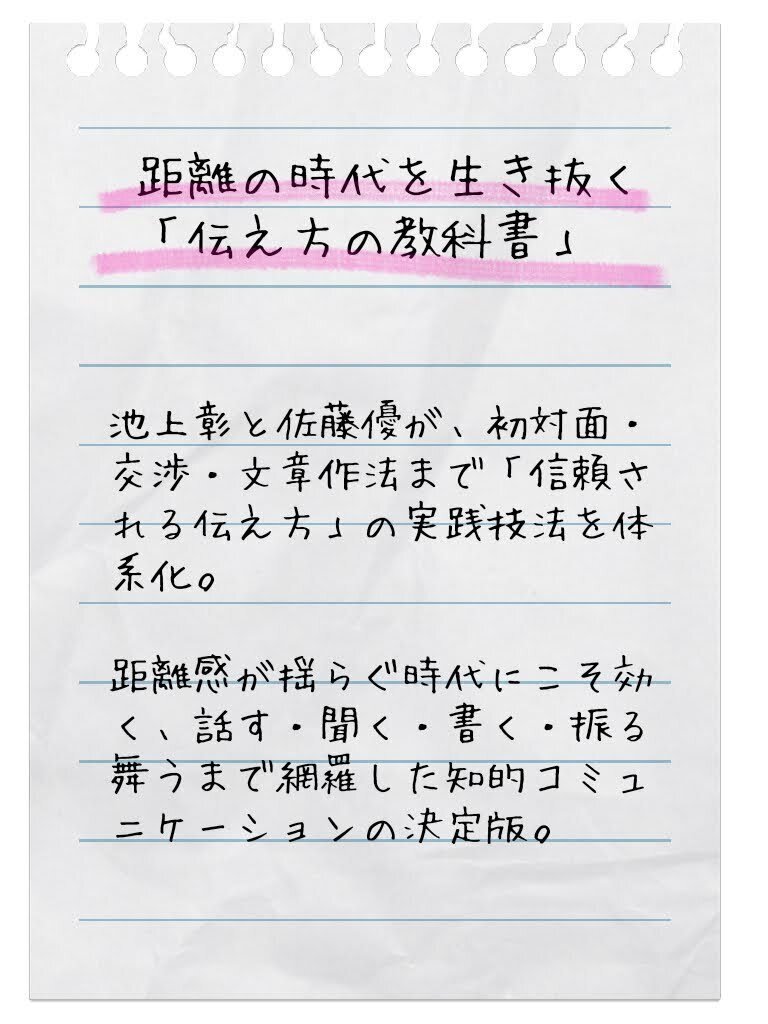 距離の時代を生き抜く
「伝え方の教科書」
池上彰と佐藤優が、初対面・
交渉・文章作法まで「信頼さ
れる伝え方」の実践技法を体
系化。
距離感が揺らぐ時代にこそ効
く、話す・聞く・書く・振る
舞うまで網羅した知的コミュ
ニケーションの決定版。